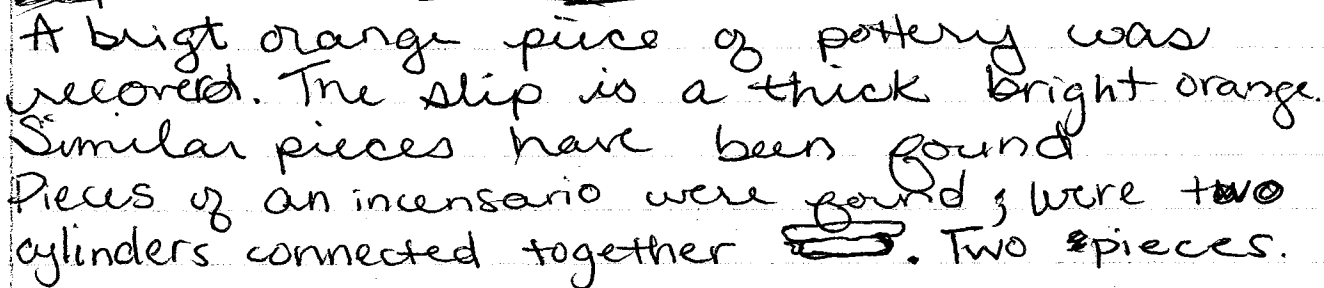 A brigt orange piece of pottery was
recoverd. The slip is a thick bright orange.
Similar pieces have been found
Pieces of an incensario were found; were two
cylinders connected together. Two pieces.